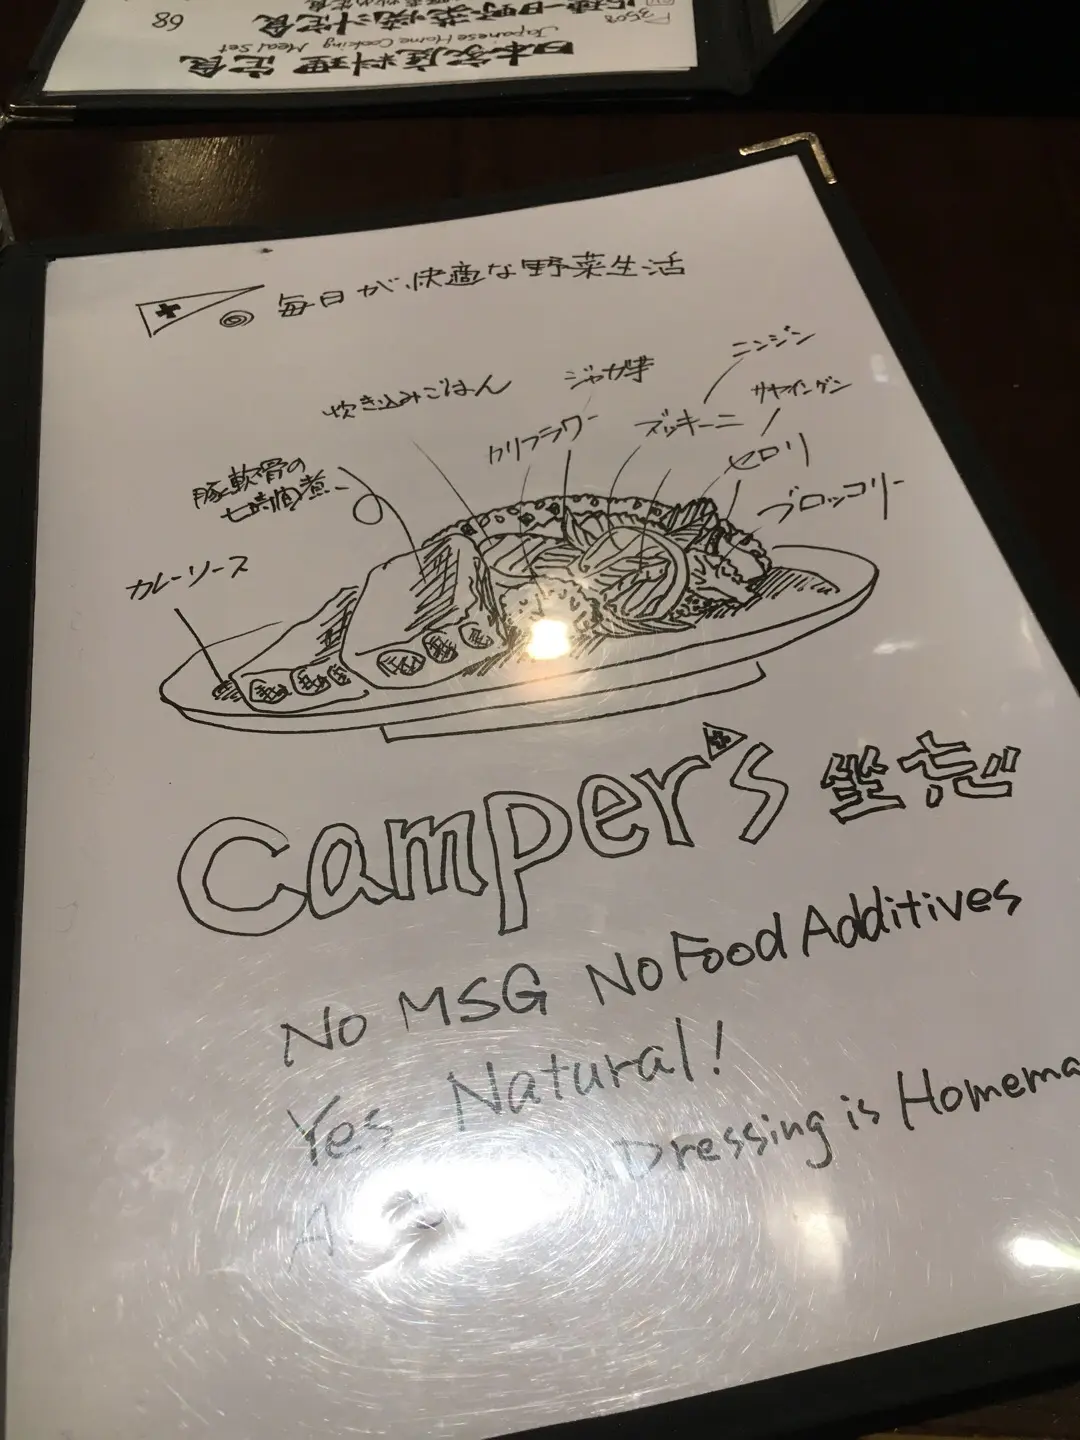 日本家庭料理 定食
Japanese Home Cooking Meal Set
68
毎日が、快適な野菜生活
ニンジン
ジャガ芋
炊き込みごはん
サヤインゲン
ズッキーニ
カリフラワー
セロリ
豚軟骨の
七時間煮
ブロッコリー
カレーソース
Camper's 坐忘
No MSG No Food Additives
Yes Natural!
Dressing is Homema